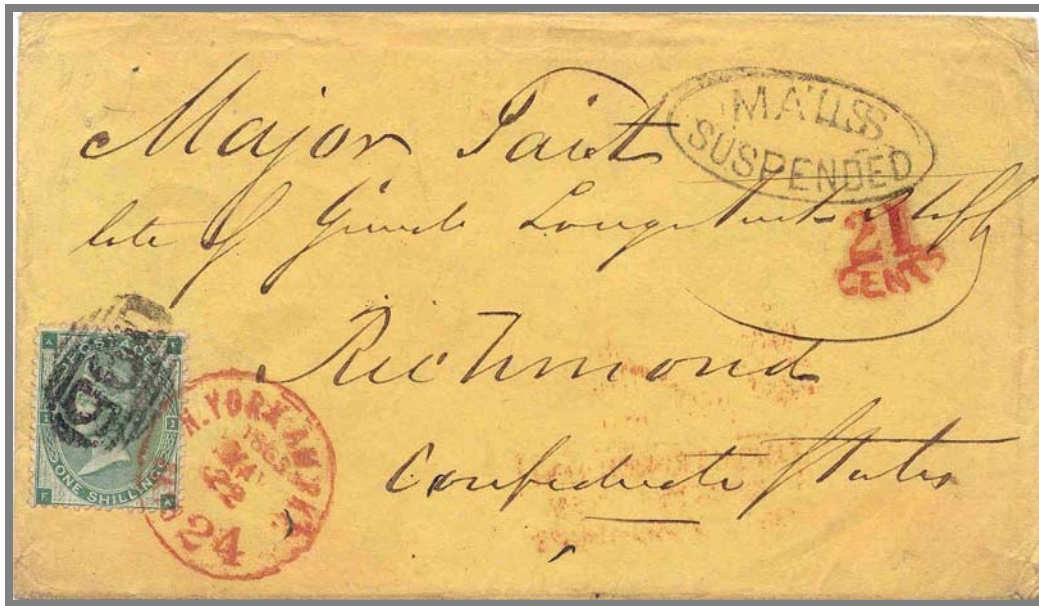 MAILS
SUSPENDED
Major Tait
late of Genl Longstreets staff
21
CENTS
Richmond
Confederate States
POSTAGE
ONE SHILLING
N. YORK AM. PKT.
1865
MAY
24